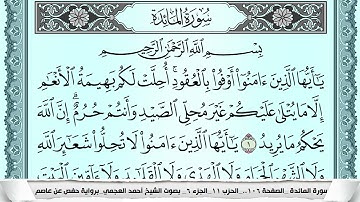 سُورَةُ المَائِدَةِ
بِسْمِ اللَّهِ الرَّحْمَٰنِ الرَّحِيمِ
يَٰٓأَيُّهَا ٱلَّذِينَ ءَامَنُوٓا۟ أَوْفُوا۟ بِٱلْعُقُودِ ۚ أُحِلَّتْ لَكُم بَهِيمَةُ ٱلْأَنْعَٰمِ
إِلَّا مَا يُتْلَىٰ عَلَيْكُمْ غَيْرَ مُحِلِّى ٱلصَّيْدِ وَأَنتُمْ حُرُمٌ ۗ إِنَّ ٱللَّهَ
يَحْكُمُ مَا يُرِيدُ ١ يَٰٓأَيُّهَا ٱلَّذِينَ ءَامَنُوا۟ لَا تُحِلُّوا۟ شَعَٰٓئِرَ ٱللَّهِ
وَلَا ٱلشَّهْرَ ٱلْحَرَامَ وَلَا ٱلْهَدْىَ وَلَا ٱلْقَلَٰٓئِدَ وَلَآ ءَآمِّينَ ٱلْبَيْتَ
سورة المائدة _ الصفحة ١٠٦ .. الحزب ١١ _ الجزء ٦ _ بصوت الشيخ أحمد العجمي _ برواية حفص عن عاصم